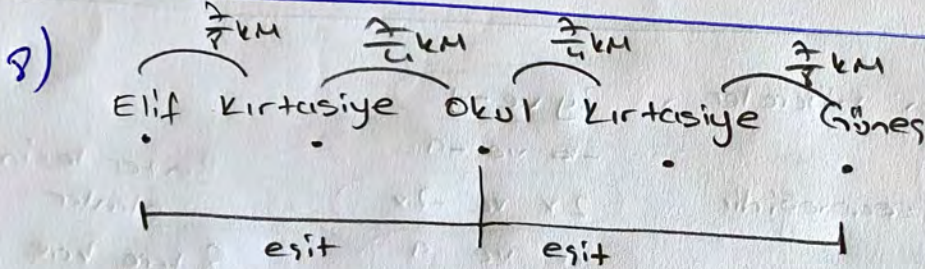 8)
7/8 km 7/4 km 7/4 km 7/8 km
Elif Kırtasiye Okul Kırtasiye Güneş
eşit eşit